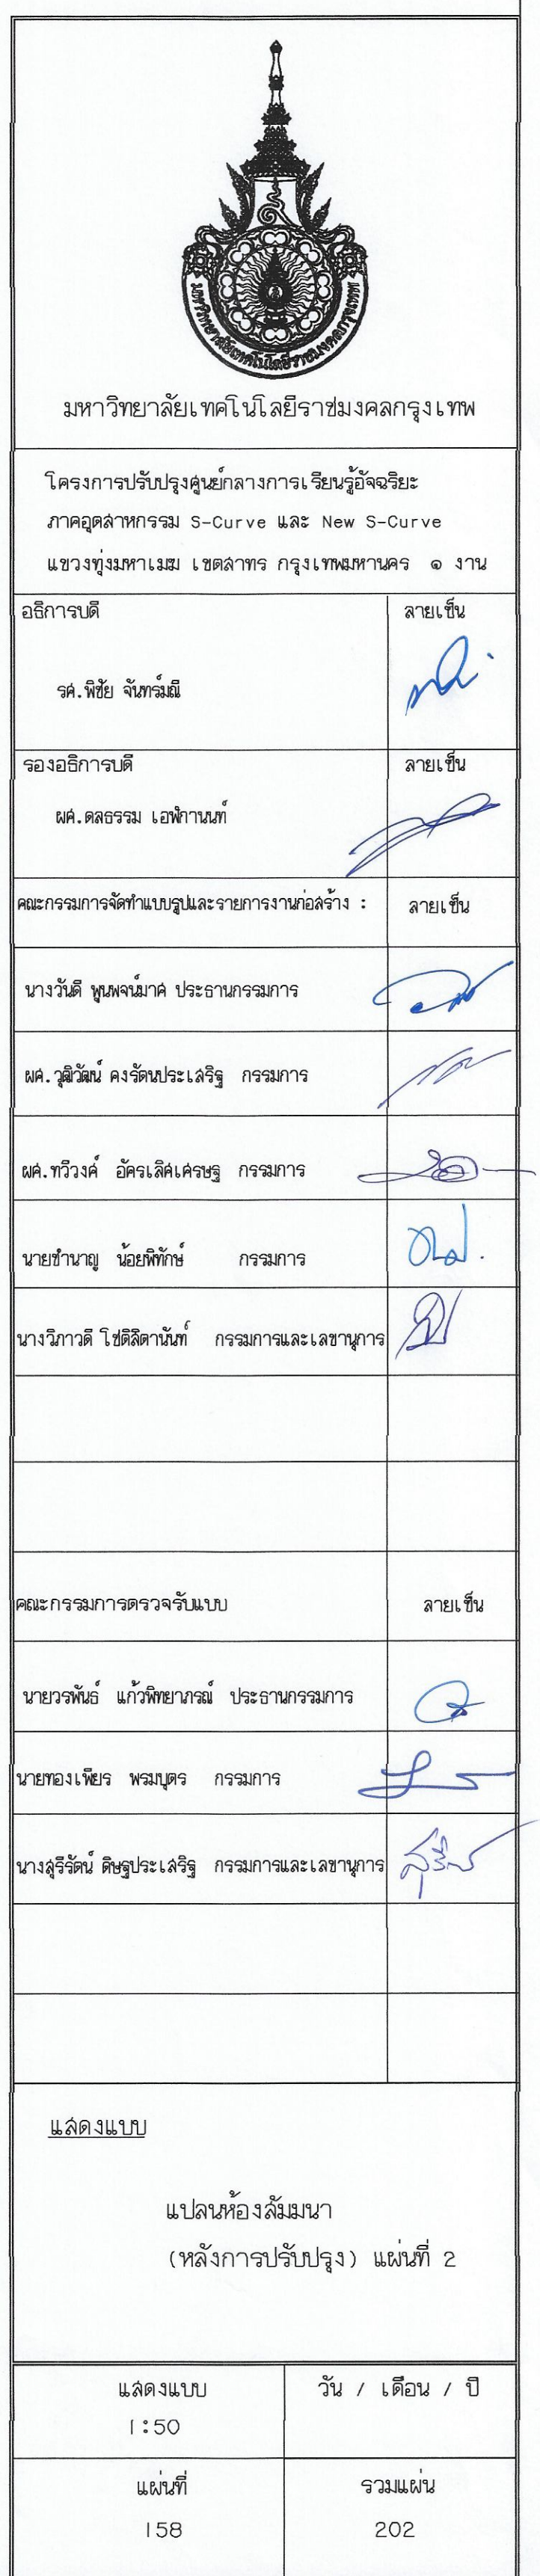 มหาวิทยาลัยเทคโนโลยีราชมงคลกรุงเทพ
มหาวิทยาลัยเทคโนโลยีราชมงคลกรุงเทพ
โครงการปรับปรุงศูนย์กลางการเรียนรู้อัจฉริยะ
ภาคอุตสาหกรรม S-Curve และ New S-Curve
แขวงทุ่งมหาเมฆ เขตสาทร กรุงเทพมหานคร ๑ งาน
อธิการบดี ลายเซ็น
รศ.พิชัย จันทร์มณี
รองอธิการบดี ลายเซ็น
ผศ.ดลธรรม เอฬกานนท์
คณะกรรมการจัดทำแบบรูปและรายการงานก่อสร้าง : ลายเซ็น
นางวันดี พูนพจน์มาศ ประธานกรรมการ
ผศ.วุฒิวัฒน์ คงรัตนประเสริฐ กรรมการ
ผศ.ทวีวงศ์ อัครเลิศเศรษฐ กรรมการ
นายชำนาญ น้อยพิทักษ์ กรรมการ
นางวิภาวดี โชติลิตานันท์ กรรมการและเลขานุการ
คณะกรรมการตรวจรับแบบ ลายเซ็น
นายวรพันธ์ แก้วพิทยาภรณ์ ประธานกรรมการ
นายทองเพียร พรมบุตร กรรมการ
นางสุรีรัตน์ ดิษฐประเสริฐ กรรมการและเลขานุการ
แสดงแบบ
แปลนห้องสัมมนา
(หลังการปรับปรุง) แผ่นที่ 2
แสดงแบบ วัน / เดือน / ปี
1:50
แผ่นที่ รวมแผ่น
158 202